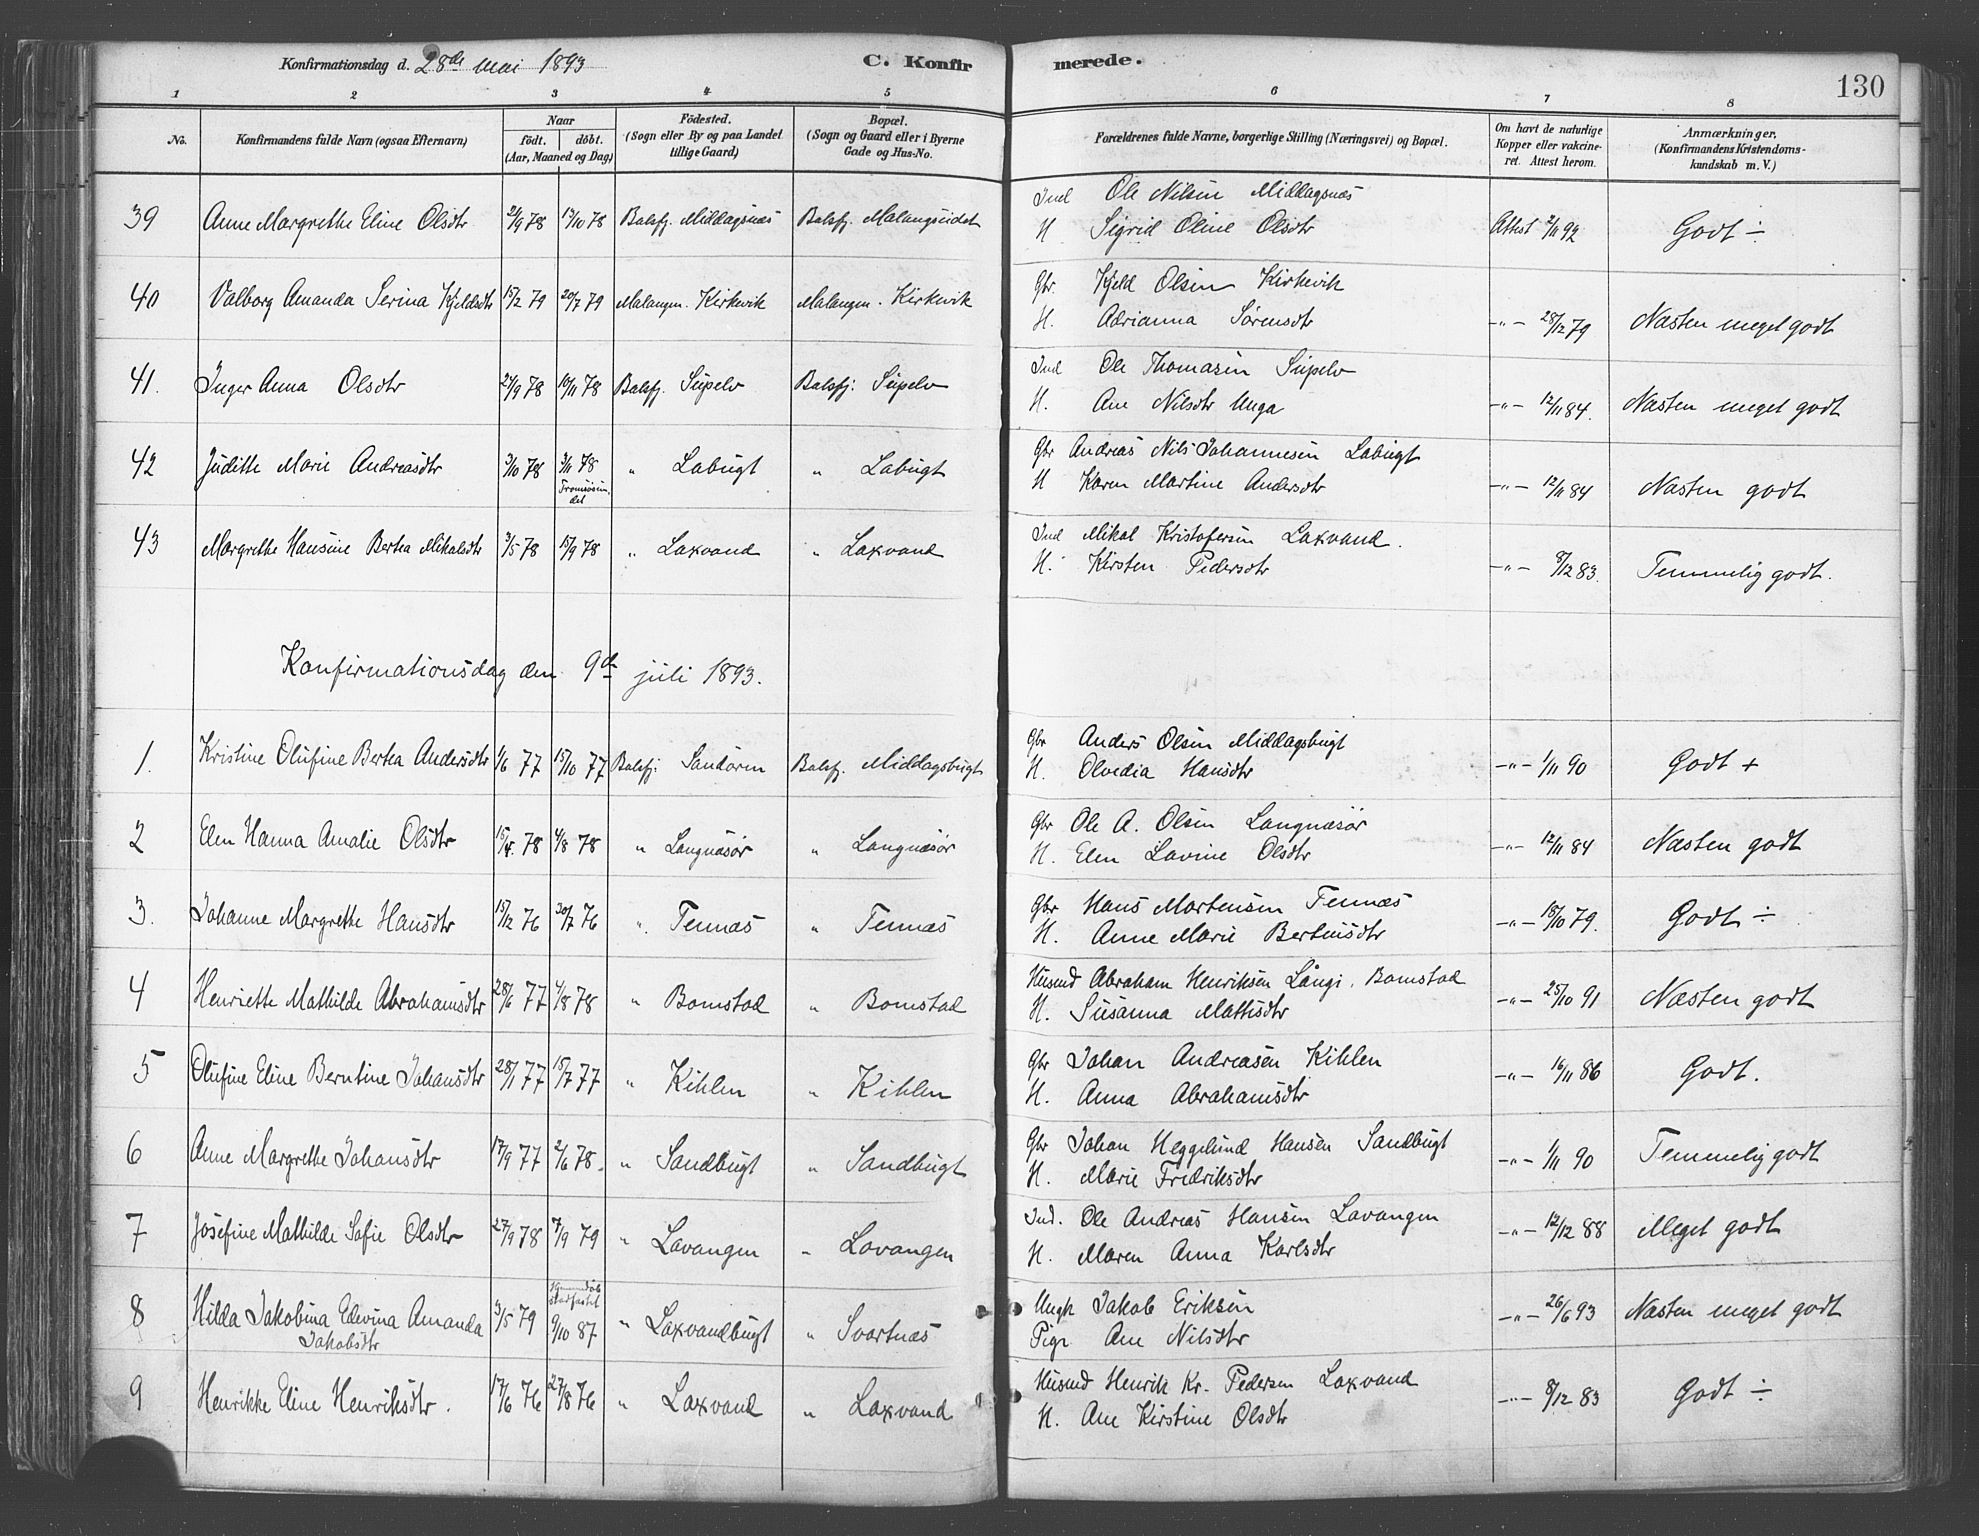 Konfirmationsdag d. 28de Mai 1893 C. Konfirmerede. 130
1 2 3 4 5 6 7 8
No. Konfirmandens fulde Navn (ogsaa Efternavn) Naar födt. döbt. (Aar, Maaned og Dag) Födested. (Sogn eller By og paa Landet tillige Gaard) Bopæl. (Sogn og Gaard eller i Byerne Gade og Hus-No. Forældrenes fulde Navne, borgerlige Stilling (Næringsvei) og Bopæl. Om havt de naturlige Kopper eller vakcineret. Attest herom. Anmærkninger, (Konfirmandens Kristendomskundskab m. V.)
Ind Ole Nilsen Middagsnæs
39 Anne Margrethe Eline Olsdtr 2/9 78 13/10 78 Balsfj. Middagsnæs Balsfj. Malangseidet H Sigrid Oline Olsdtr Attest 2/11 92 Godt ÷
Gbr. Kjeld Olsen Kirkevik
40 Valborg Amanda Serina Kjeldsdtr 15/2 79 20/7 79 Malangen. Kirkevik Malangen. Kirkevik H. Adrianna Sørensdtr -"- 28/12 79 Næsten meget godt
Ind Ole Thomasen Sipelv
41. Inger Anna Olsdtr 27/9 78 10/11 78 Balsfj. Sipelv Balsfj: Sipelv H. Ane Nilsdtr Unga -"- 12/11 84. Næsten meget godt
Gbr Andreas Nils Johannesen Labugt
42 Judithe Marie Andreasdtr 3/10 78 3/11 78 Tromsøsundet " Labugt " Labugt H Karen Martine Andersdtr -"- 12/11 84 Næsten godt
Ind Mikal Kristofersen Laxvand.
43 Margrethe Hansine Bertea Mikalsdtr 3/5 78 15/9 78 " Laxvand " Laxvand H. Kirsten Pedersdtr -"- 9/12 83. Temmelig godt.
Konfirmationsdag den 9de juli 1893.
Gbr Anders Olsen Middagsbugt
1. Kristine Olufine Bertea Andersdtr 1/6 77 15/10 77 Balsfj: Sandøren Balsfj. Middagsbugt H. Olvedia Hansdtr -"- 1/11 90 Godt +
Gbr Ole A. Olsen Langnæsør
2 Elen Hanna Amalie Olsdtr 15/4. 78 4/8 78 " Langnæsør " Langnæsør H. Elen Lavine Olsdtr -"- 12/11 84 Næsten godt
Gbr Hans Mortensen Tennæs
3. Johanne Margrethe Hansdtr 15/12 76 30/7 76 ". Tennæs " Tennæs H. Anne Marie Berteusdtr -"- 18/10 79. Godt ÷
Husmd Abraham Henriksen Långi. Bomstad
4 Henriette Mathilde Abrahamsdtr 28/6 77 4/8 78 " Bomstad " Bomstad H. Susanna Mattisdtr -"- 25/10 91 Næsten godt
Gbr Johan Andreasen Kihlen
5 Olufine Eline Berntine Johansdtr 28/1 77 15/7 77 " Kihlen " Kihlen H. Anna Abrahamsdtr -"- 16/11 86 Godt.
Gbr Johan Heggelund Hansen Sandbugt
6 Anne Margrethe Johansdtr 17/9 77 2/6 78. " Sandbugt " Sandbugt H. Marie Fredriksdtr -"- 1/11 90 Temmelig godt
Ind. Ole Andreas Hansen Lavangen
7 Josefine Mathilde Sofie Olsdtr 27/9 78 7/9 79 " Lavangen " Lavangen H. Maren Anna Karlsdtr -"- 12/12 88 Meget godt
Ungk Jakob Eriksen
8 Hilda Jakobina Edevina Amanda Jakobsdtr 3/5 79 stadfæstet 9/10 87 " Laxvandbugt " Svartnæs Pige Ane Nilsdtr -"- 26/6 93 Næsten meget godt
Husmd Henrik Kr. Pedersen Laxvand
9 Henrikke Eline Henriksdtr. 17/6 76 27/8 76 " Laxvand " Laxvand H. Ane Kirstine Olsdtr -"- 8/12 83 Godt ÷